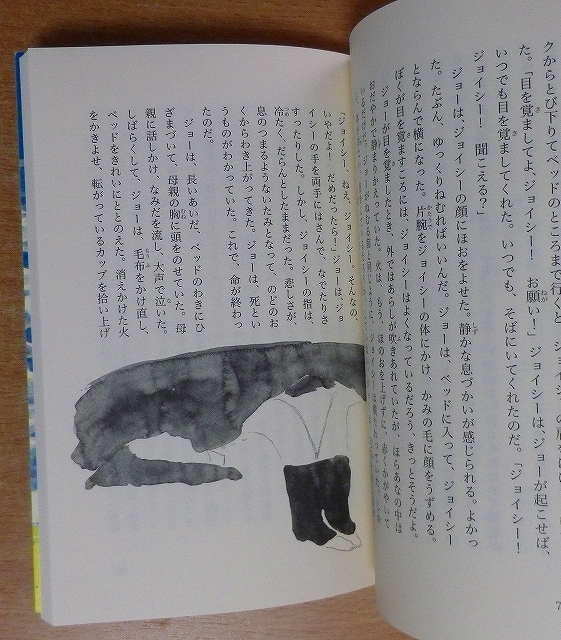 クからとび下りてベッドのところまで行くと、ジョイシーの肩をゆ
た。「目を覚ましてよ、ジョイシー！　お願い！」ジョイシーは、ジョーが起こせば、
いつでも目を覚ましてくれた。いつでも、そばにいてくれたのだ。「ジョイシー！
ジョイシー！　聞こえる？」
ジョーは、ジョイシーの顔にほおをよせた。静かな息づかいが感じられる。よかっ
た。たぶん、ゆっくりねむればいいんだ。ジョーは、ベッドに入って、ジョイシー
とならんで横になった。片腕をジョイシーの体にかけ、かみの毛に顔をうずめる。
ぼくが目を覚ますころには、ジョイシーはよくなっているだろう、きっとそうだよ。
ジョーが目を覚ましたとき、外ではあらしが吹きあれていたが、ほらあなの中は
おだやかで静まりかえっていた。火はもう、ほのおを上げずに、赤くかがやいて
「ジョイシー、ねえ、ジョイシー。そんなの、
いやだよ！　だめだったら！」ジョーは、ジョ
イシーの手を両手にはさんで、なでたりさ
すったりした。しかし、ジョイシーの指は、
冷たく、だらんとしたままだった。悲しさが、
息のつまるようないたみとなって、のどのお
くからわき上がってきた。ジョーは、死とい
うものがわかっていた。これで、命が終わっ
たのだ。
ジョーは、長いあいだ、ベッドのわきにひ
ざまづいて、母親の胸に頭をのせていた。母
親に話しかけ、なみだを流し、大声で泣いた。
しばらくして、ジョーは、毛布をかけ直し、
ベッドをきれいにととのえた。消えかけた火
をかきよせ、転がっているカップを拾い上げ
7